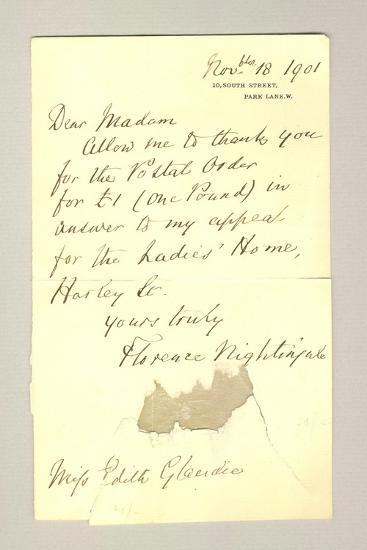 Novbr 18 1901
10, SOUTH STREET,
PARK LANE. W.
Dear Madam
Allow me to thank you
for the Postal Order
for £1 (One Pound) in
answer to my appeal
for the Ladies' Home,
Harley St.
yours truly
Florence Nightingale
Miss Edith